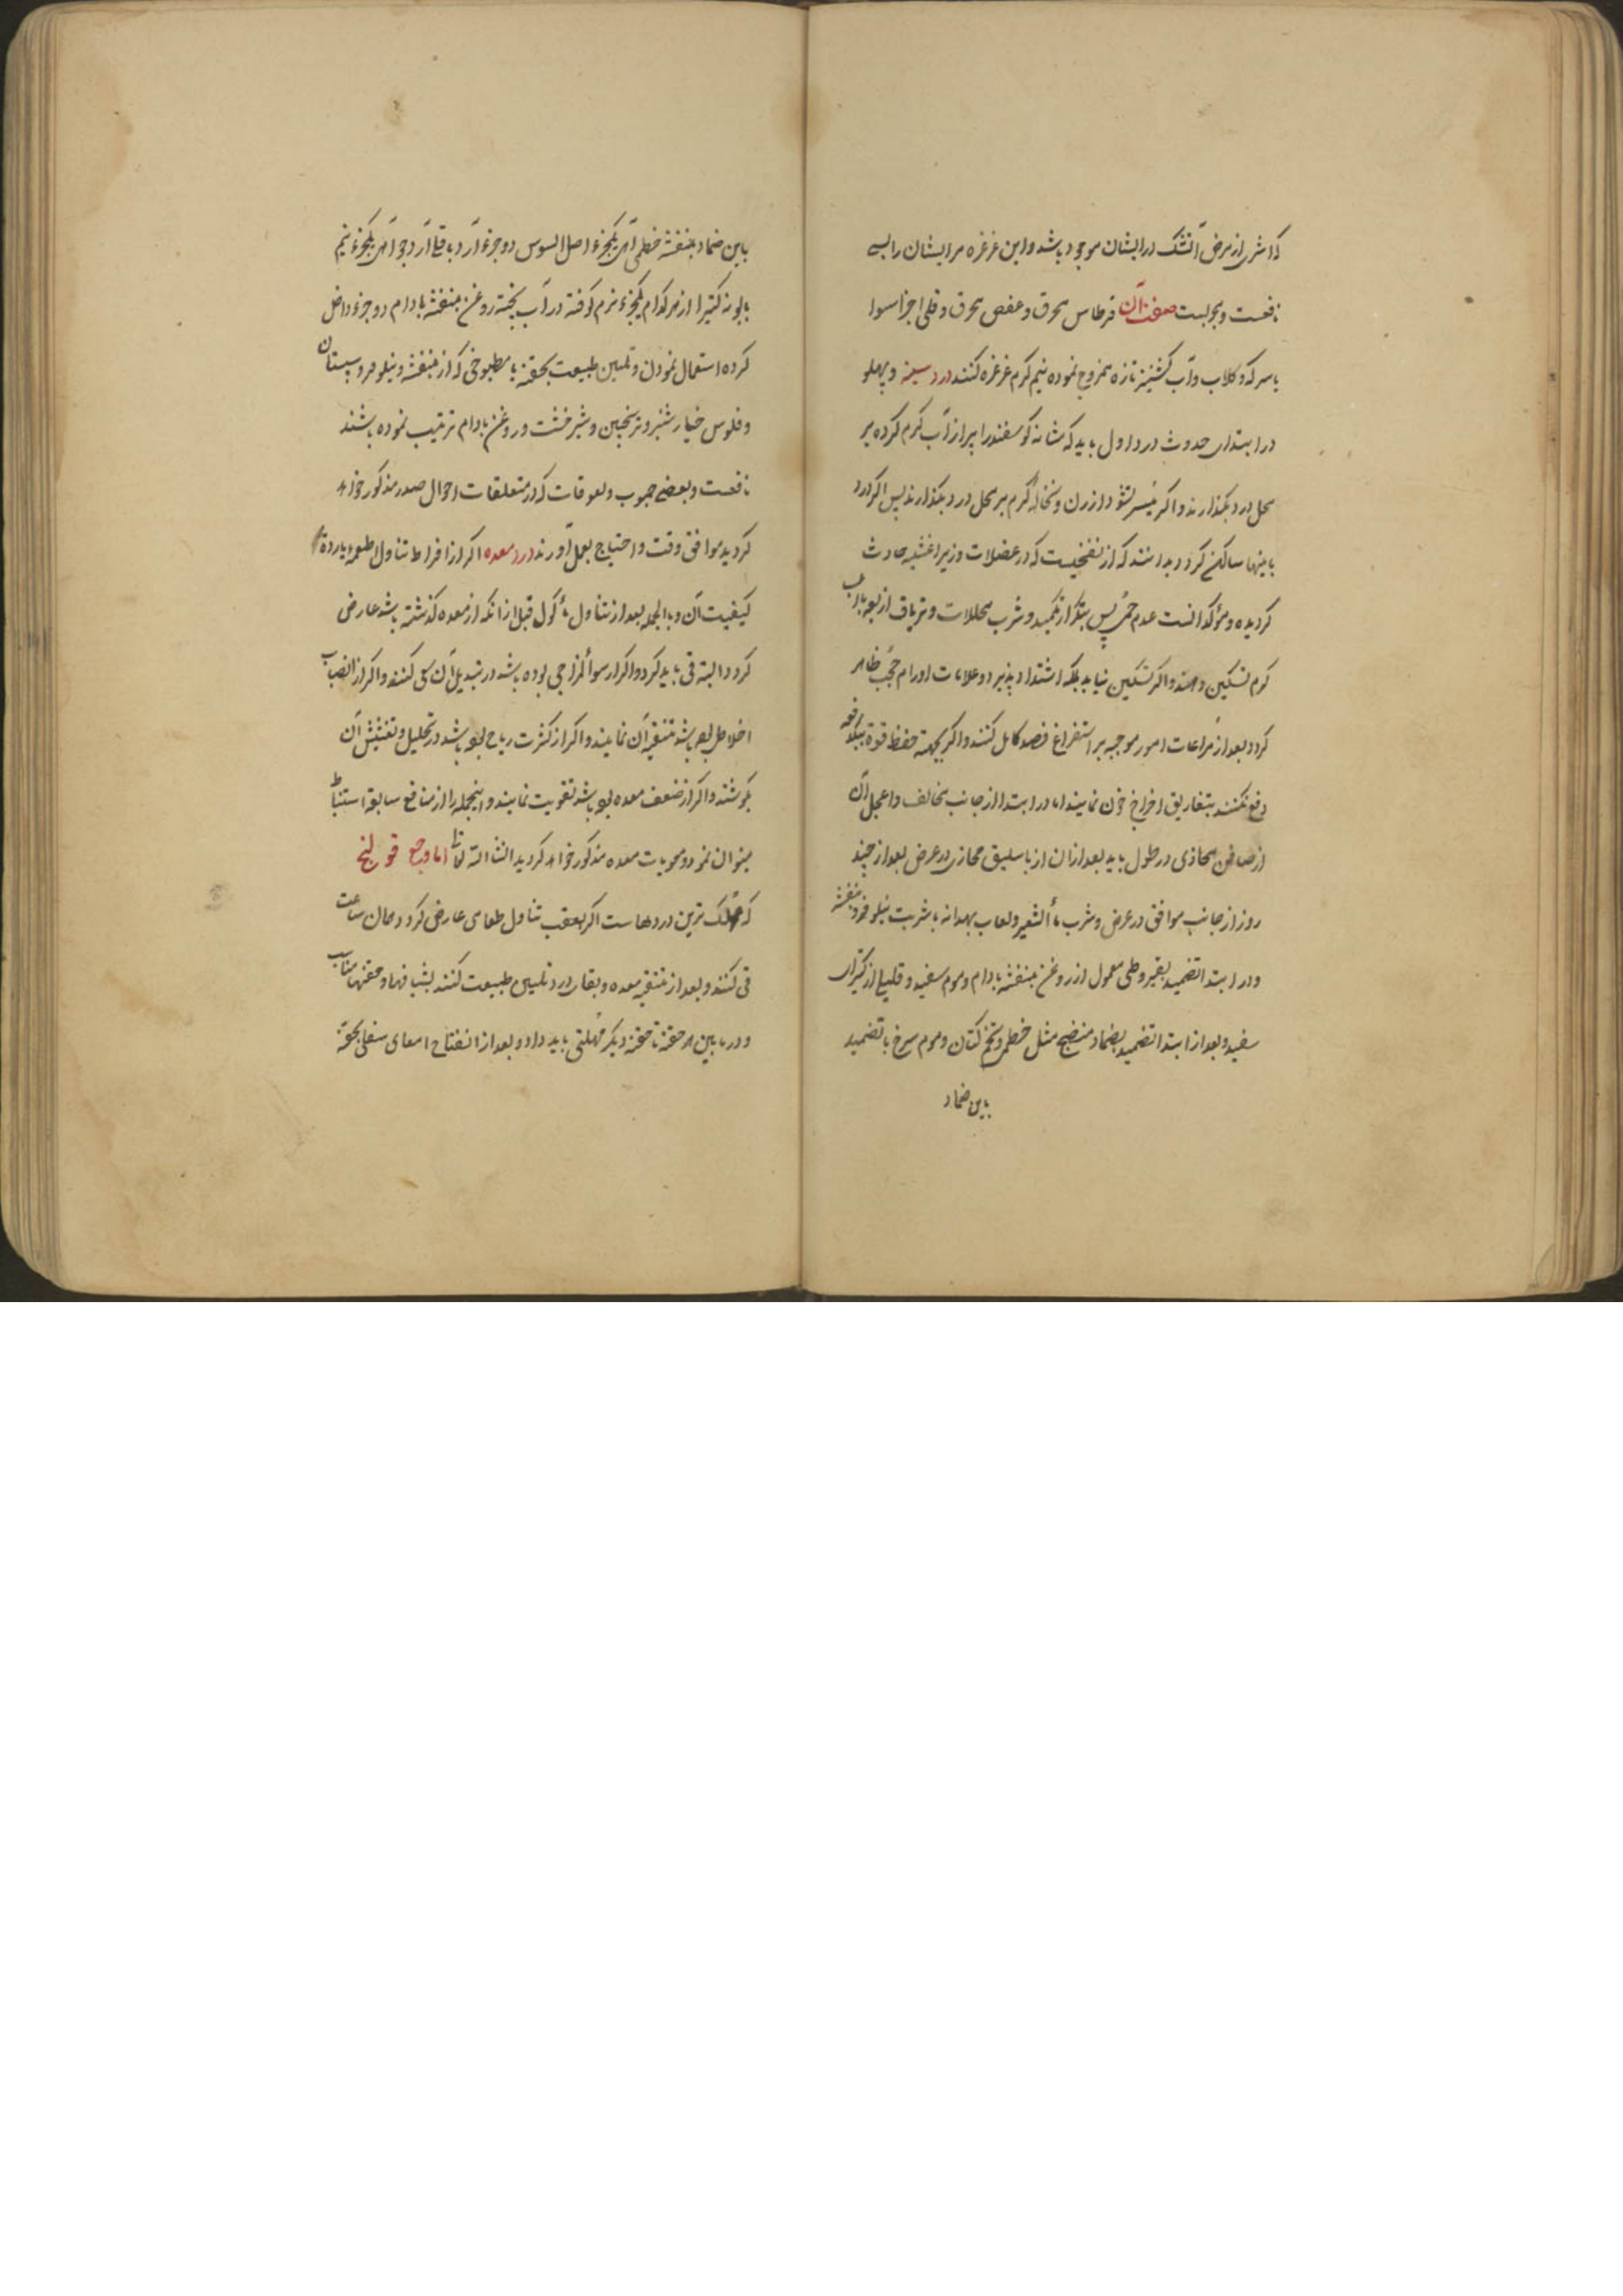 که اثری از مرض آتشک در ایشان موجود باشد و این غرغره مر ایشان را بسی
نافعست و مجربست صفت آن قرطاس محرق و عفص محرق و قلی اجزا سوا
با سرکه و کلاب و آب کشنیز تازه ممزوج نموده نیم کرم غرغره کنند درد سینه و پهلو
در ابتدای حدوث درد اول باید که شانه کوسفند را پر از آب کرم کرده بر
محل درد بگذارند و اکر میسر نشود ارزن و نخاله کرم بر محل درد بگذارند پس اکر درد
باینها ساکن کردد بدانند که از نفخیست که در عضلات و زیر اغشیه حادث
کردیده و مؤکد انست عدم حمی پس بتکرار تکمید و شرب محللات و تریاق اربعه باب
کرم تسکین دهند و اکر تسکین نیابد بلکه اشتداد پذیرد و علامات اورام حجب ظاهر
کردد بعد از مراعات امور موجبه بر استفراغ فصد کامل کنند و اکر بجهة حفظ قوة بیکدفعه
دفع نکنند بتفاریق اخراج خون نمایند اما در ابتدا از جانب مخالف و اعجل آن
از صافن محاذی در طول باید بعد از ان از باسلیق محاذی در عرض بعد از چند
روز از جانب موافق در عرض و شرب ماء الشعیر و لعاب بهدانه با شربت نیلوفر و بنفشه
و در ابتدا تضمید بقیروطی معمول از روغن بنفشه بادام و موم سفید و قلیلی از کتیرای
سفید و بعد از ابتدا تضمید بضماد منضج مثل خطمی و تخم کتان و موم سرخ یا تضمید
باین ضماد
باین ضماد بنفشه خطمی از هریک یکجزء اصل السوس دو جزء آرد باقلی آرد جو از هریک یکجزء نیم
بابونه کتیرا از هرکدام یکجزء نرم کوفته در آب پخته روغن بنفشه بادام دو جزء داخل
کرده استعمال نمودن و تلیین طبیعت بحقنه یا مطبوخی که از بنفشه و نیلوفر و سپستان
و فلوس خیارشنبر و ترنجبین و شیرخشت و روغن بادام ترتیب نموده باشند
نافعست و بعضی حبوب و لعوقات که در متعلقات احوال صدر مذکور خواهد
کردید موافق وقت و احتیاج بعمل آورند درد معده اکر از افراط تناول اطعمه بارده
کیفیت آن و بالجمله بعد از تناول مأکول قبل از انکه از معده کذشته باشد عارض
کردد البته قی باید کرد و اکر از سوء المزاجی بوده باشد در تبدیل آن سعی کنند و اکر از انصباب
اخلاطی بوده باشد تنقیه آن نمایند و اکر از کثرت ریاح بوده باشد در تحلیل و تفشیش آن
بکوشند و اکر از ضعف معده بوده باشد تقویت نمایند و اینجمله را از منافع سابقه استنباط
میتوان نمود و مجربات معده مذکور خواهد کردید انشاء الله تعالی اما وجع قولنج
که مهلک ترین دردهاست اکر بعقب تناول طعامی عارض کردد همان ساعت
قی کنند و بعد از تنقیه معده و بقای درد تلیین طبیعت کنند بشیافها و حقنهای مناسب
و در مابین هر حقنه تا حقنه دیکر مهلتی باید داد و بعد از انفتاح امعای سفلی بحقنه